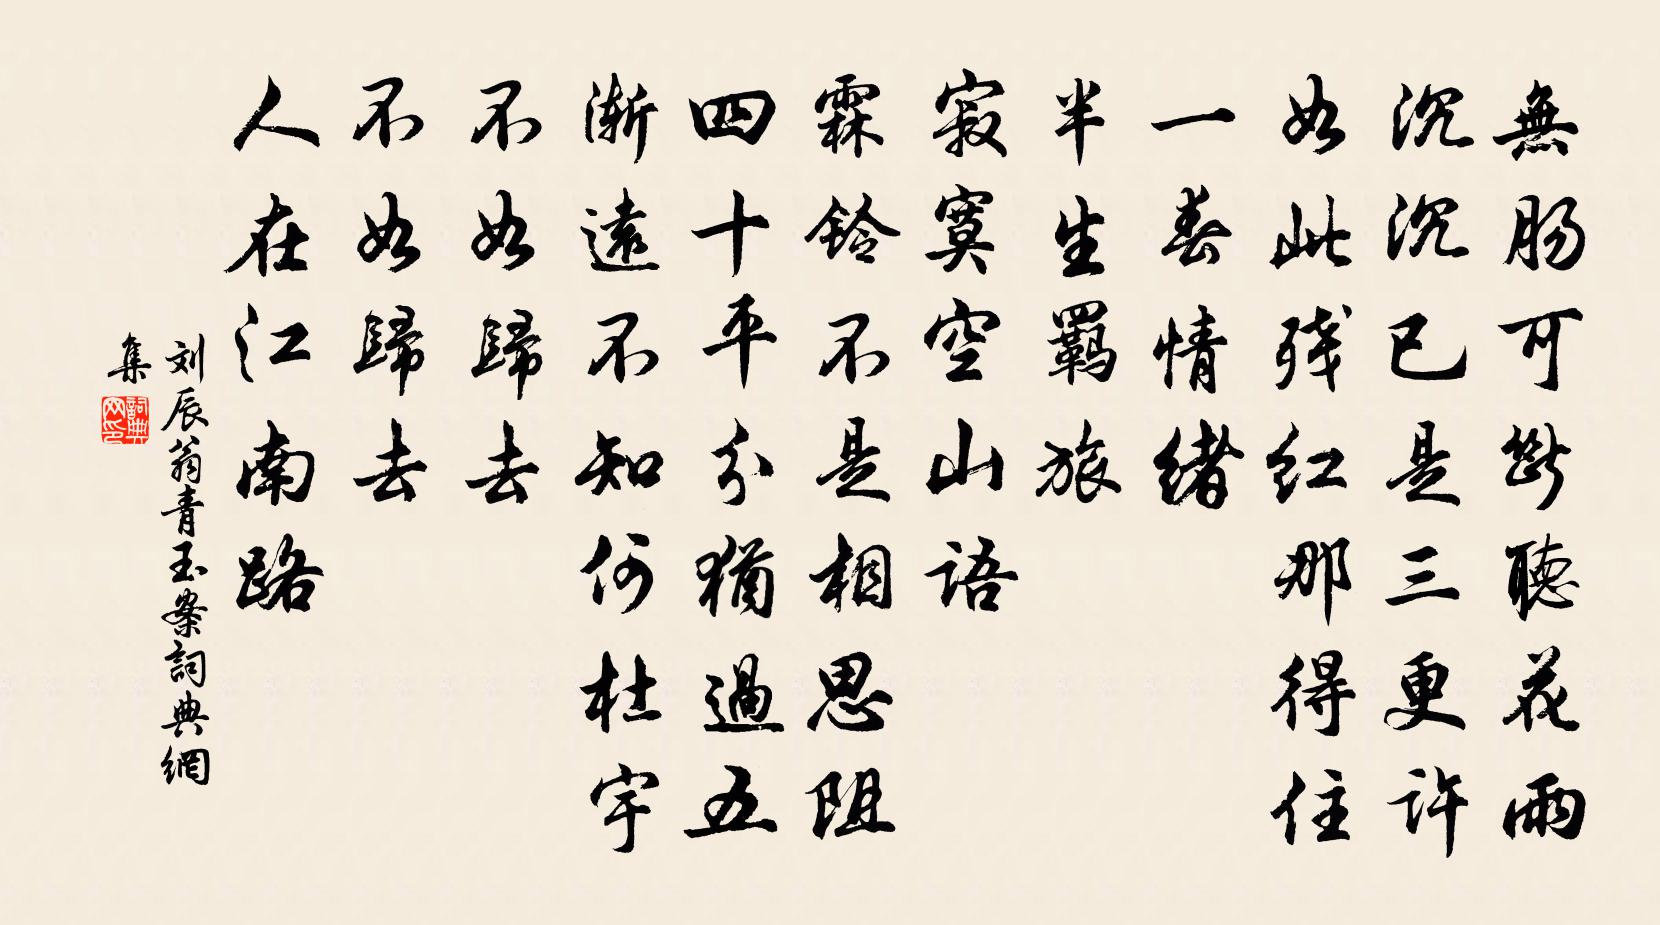 無腸可斷聽花雨
沉沉已是三更許
如此残红那得住
一春情緒
半生羁旅
寂寞空山语
霖鈴不是相思阻
四十平分猶過五
渐遠不知何杜宇
不如歸去
不如歸去
人在江南路
刘辰翁青玉案詞典網
集
詞典網印